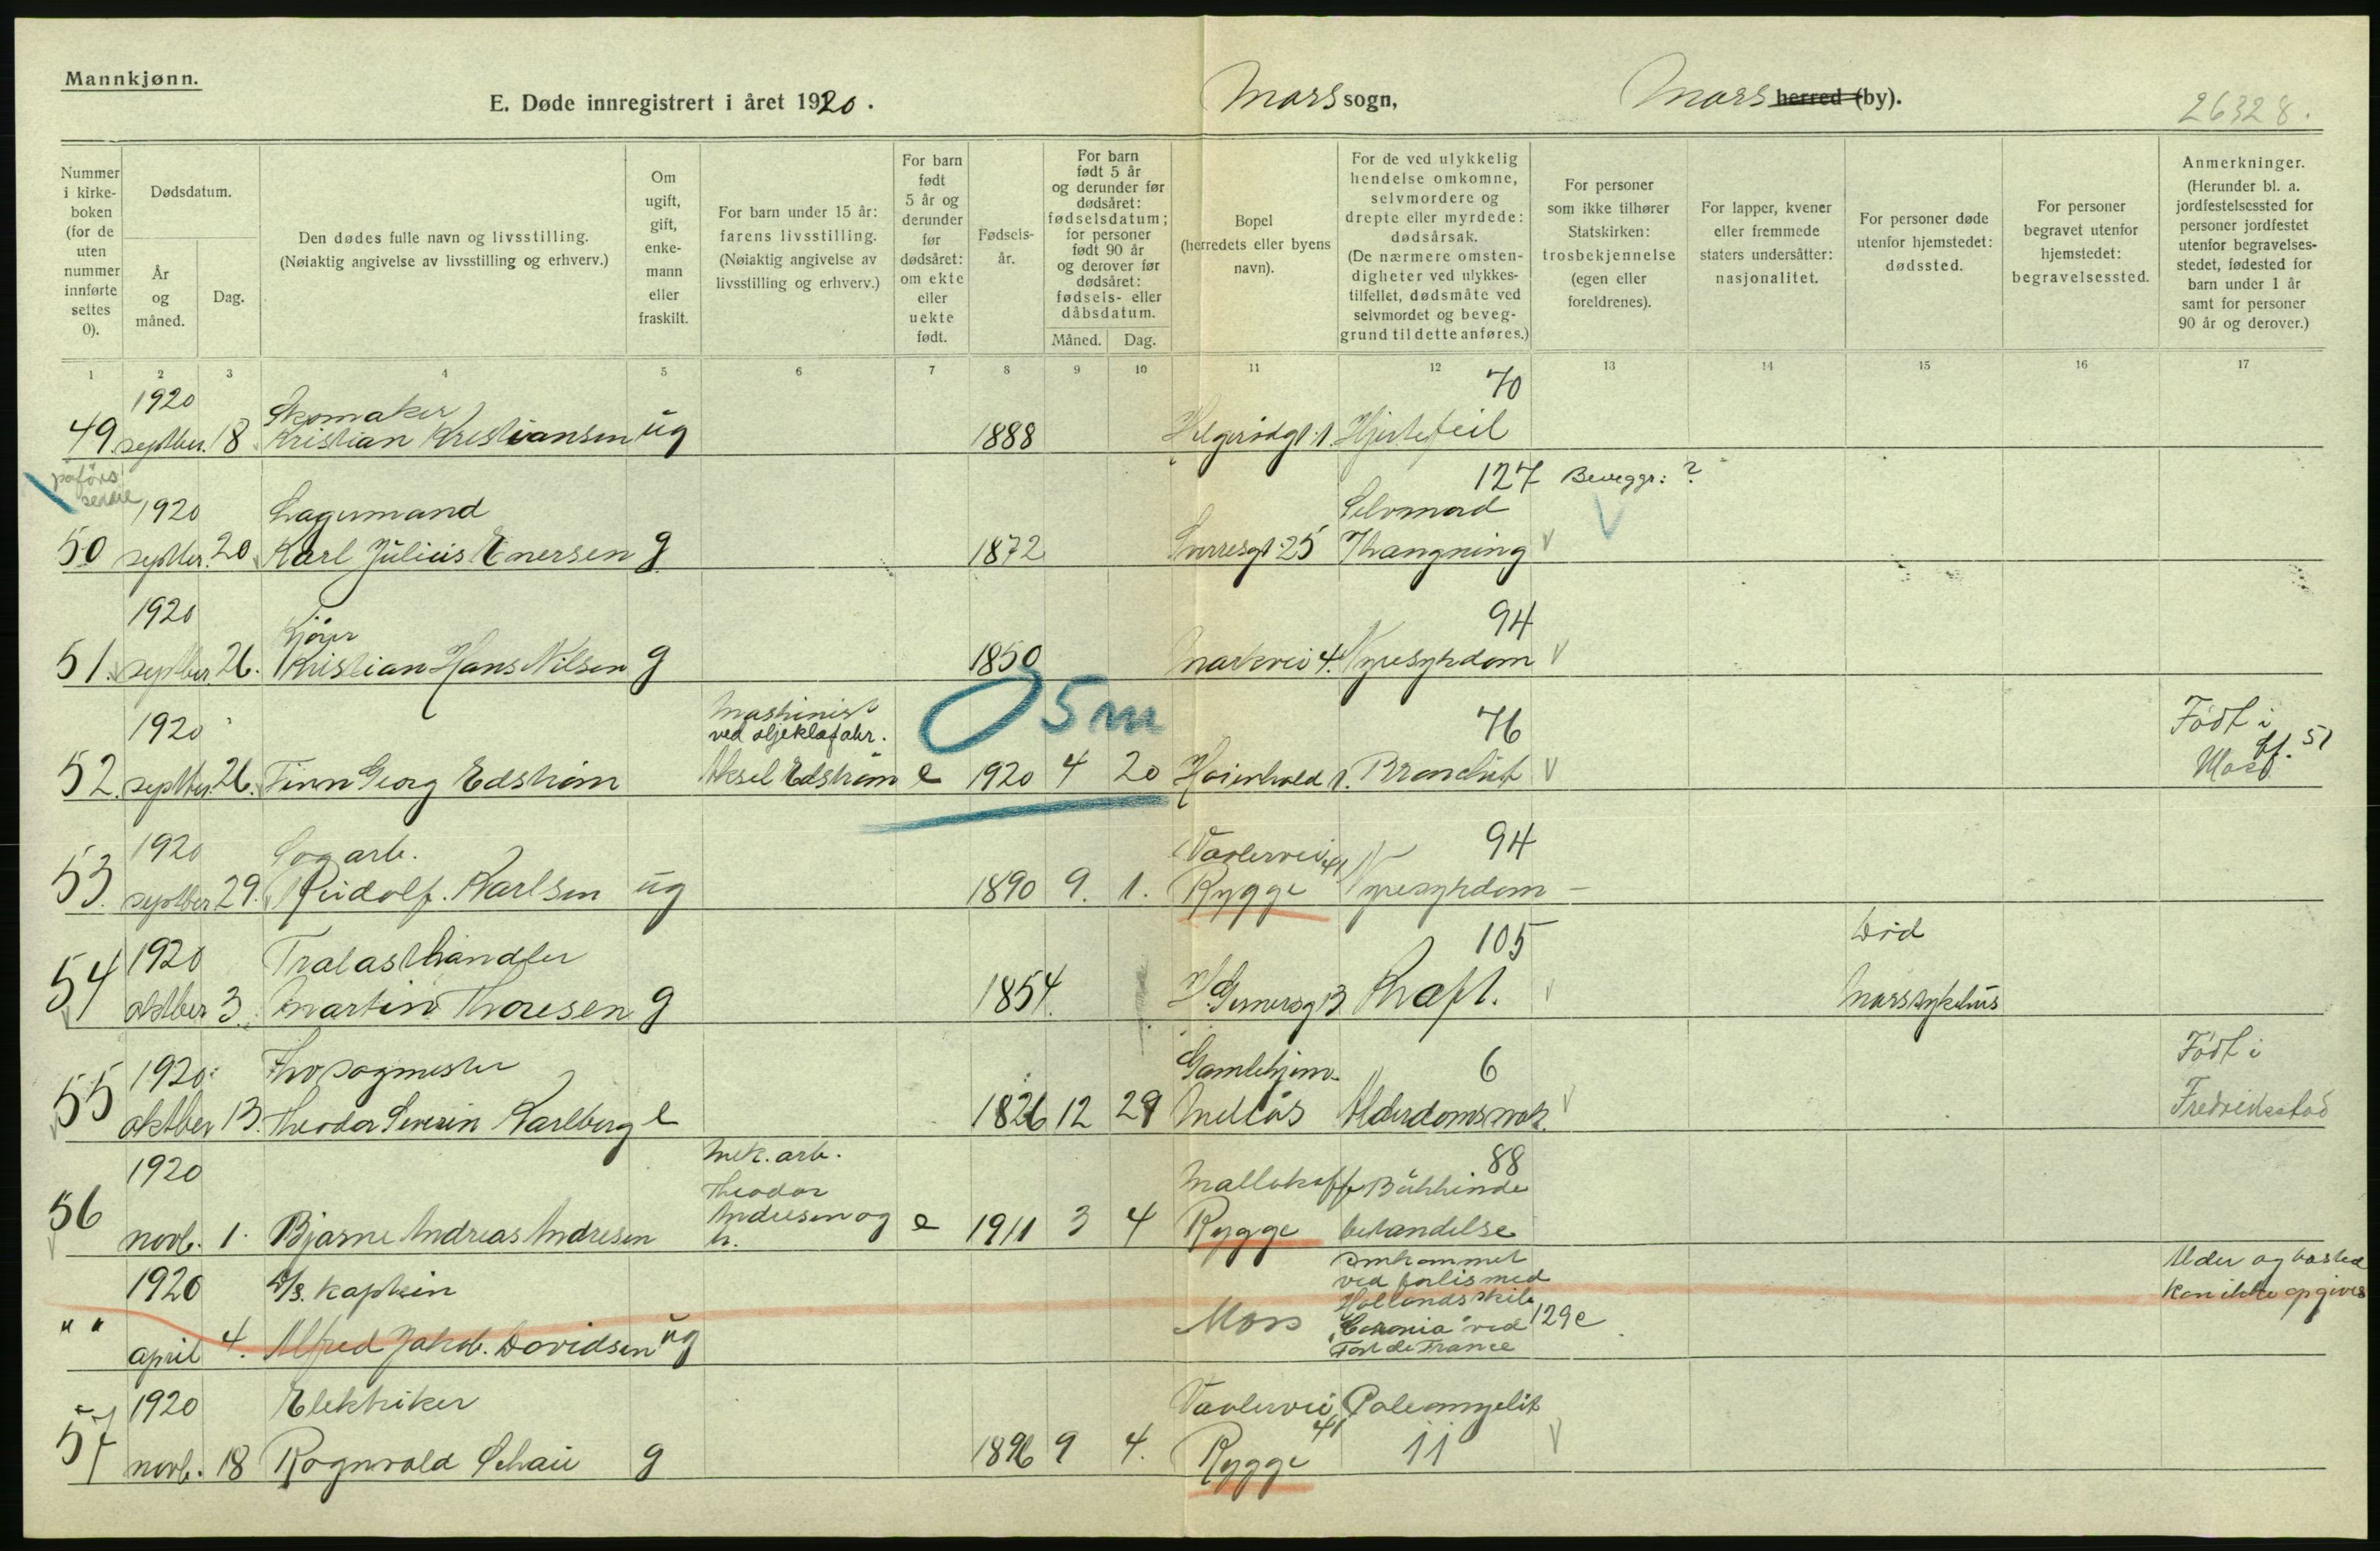 Mannkjønn.
E. Døde innregistrert i året 1920.
Moss sogn,
Moss herred (by).
26328.
Nummer i kirke-boken (for de uten nummer innførte settes 0).
Dødsdatum.
År og måned.
Dag.
Den dødes fulle navn og livsstilling. (Nøiaktig angivelse av livsstilling og erhverv.)
Om ugift, gift, enke-mann eller fraskilt.
For barn under 15 år: farens livsstilling. (Nøiaktig angivelse av livsstilling og erhverv.)
For barn født 5 år og derunder før dødsåret: om ekte eller uekte født.
Fødsels-år.
For barn født 5 år og derunder før dødsåret: fødselsdatum; for personer født 90 år og derover før dødsåret: fødsels- eller dåbsdatum.
Måned.
Dag.
Bopel (herredets eller byens navn).
For de ved ulykkelig hendelse omkomne, selvmordere og drepte eller myrdede: dødsårsak. (De nærmere omsten-digheter ved ulykkes-tilfellet, dødsmåte ved selvmordet og beveg-grund til dette anføres.)
For personer som ikke tilhører Statskirken: trosbekjennelse (egen eller foreldrenes).
For lapper, kvener eller fremmede staters undersåtter: nasjonalitet.
For personer døde utenfor hjemstedet: dødssted.
For personer begravet utenfor hjemstedet: begravelsessted.
Anmerkninger. (Herunder bl. a. jordfestelsessted for personer jordfestet utenfor begravelses-stedet, fødested for barn under 1 år samt for personer 90 år og derover.)
1 2 3 4 5 6 7 8 9 10 11 12 13 14 15 16 17
1920 Skomaker 70
49. septber. 18 Kristian Kristiansen ug 1888 Hjertefeil
påførs senere
1920 Lagermand 127 Beveggr: ?
Selvmord
50 septber. 20 Karl Julius Enersen g 1872 Sverresgt. 25 Thængning
1920 Kjører 94
51. septber. 26. Kristian Hans Nilsen g 1850 Markvei 4. Nyresykdom
05m
1920 Maskinist ved oljeklæfabr. 76 Født i
52. septber. 26. Finn Georg Edstrøm Aksel Edstrøm e 1920 4 20 Bronchit Moss bf. 51
1920 Sagarb. Vaalervei 41 94
53. septber 29. Rudolf. Karlsen ug 1890 9. 1. Rygge Nyresykdom -
1920 Trælasthandler 105 Død
54 oktber 3. Martin Thoresen g 1854. Kræft. Moss sykehus
1920 Gamlehjem 6 Født i
55 oktber 13. Theodor Severin Karlberg e 1826 12 29 Melløs Alderdomssvak. Fredrikstad
1920 Mek. arb. 88
Theodor Mallakoff Bukhinde
56 novb. 1. Bjarne Andreas Andresen Andresen og h. e 1911 3 4 Rygge betændelse
1920 D/S. kaptein Omkommet ved forlis med Hollandsk skib Alder og bosted kan ikke opgives
" " april 4. Alfred Jakob. Davidsen ug Moss ved Fort de France 129e
1920 Elektriker Vaalervei 41 Poleomyelit
57 novb. 18 Rognvald Schau g 1896 9 4. Rygge 11